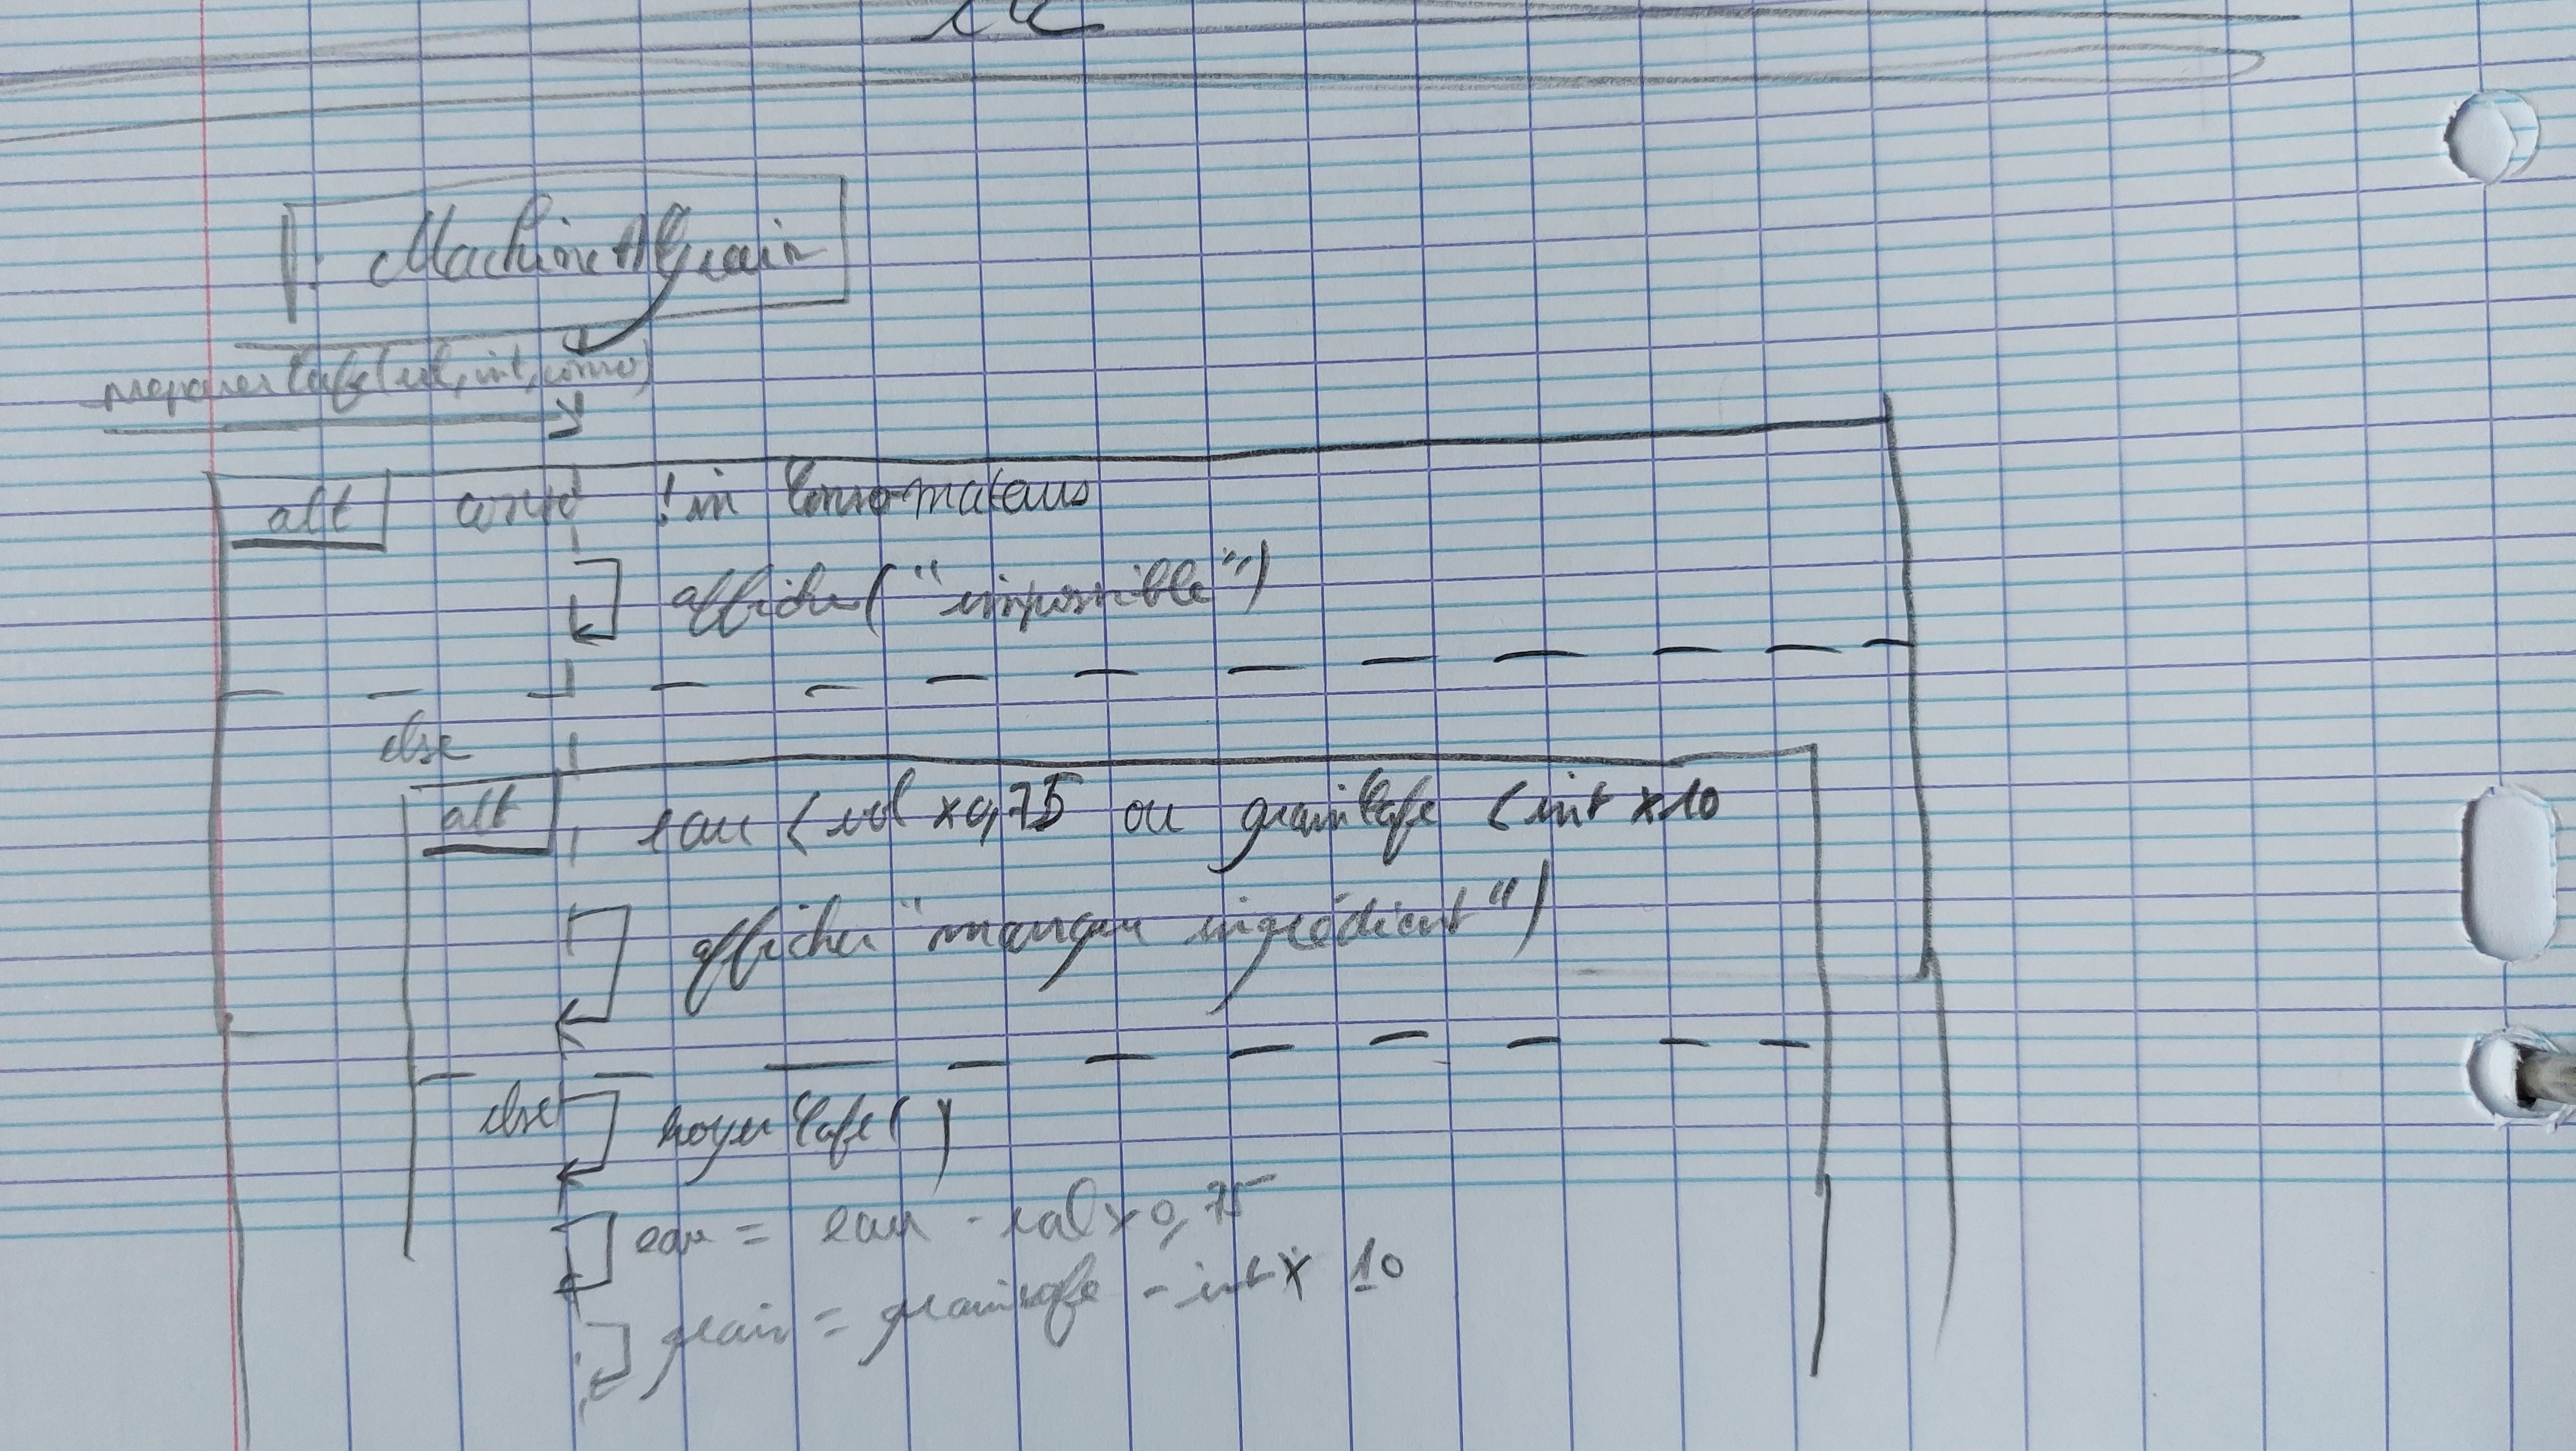 : MachineAGrain
preparerCafe(vol, int, conso)
alt ! in
afficher("impossible")
else
alt eau < vol x 0,75 ou grainCafe < int x 10
afficher "manque ingrédient")
else broyerCafe()
eau = eau - vol x 0,75
grain = graincafe - int x 10